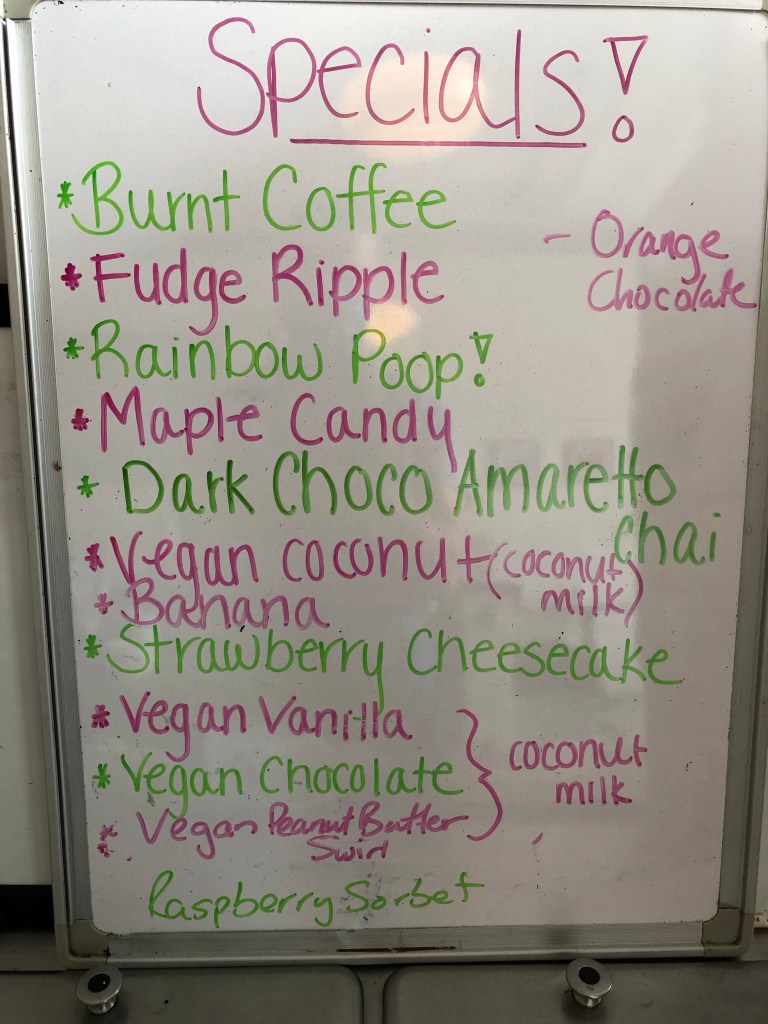 Specials!
* Burnt Coffee
- Orange
Chocolate
* Fudge Ripple
* Rainbow Poop!
* Maple Candy
* Dark Choco Amaretto
Chai
* Vegan coconut (coconut
milk)
* Banana
* Strawberry Cheesecake
* Vegan Vanilla
* Vegan Chocolate
coconut
milk
* Vegan Peanut Butter
Swirl
Raspberry Sorbet